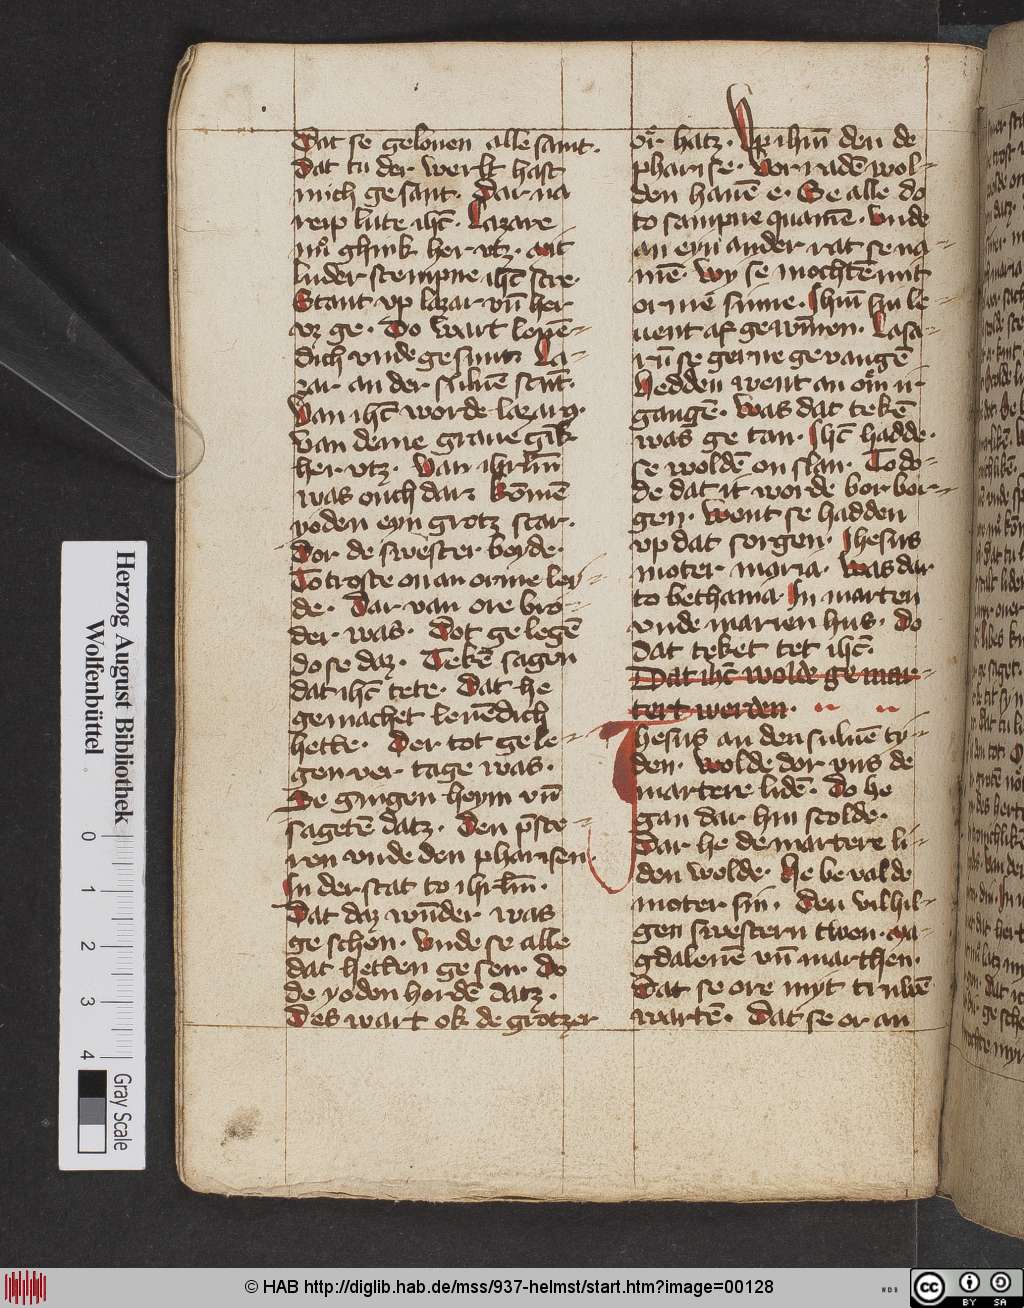 Dat se gelouen alle samt.
dat tu der werlt hast
mich gesant. Dar na
reip lute ihc̄. Lazare
nu ghink her vtz. mit
luder stempne ihc̄ scre.
Stant vp lazar vn̄ her
vz ge. Do wart leuē-
dich vnde gesunt La-
zar an der suluē stūt.
Van ihc̄ worde lazarꝫ.
van deme graue gīk
her vtz. Van ihrl̄m
was ouch dar kōmē
yoden eyn grotz scar.
Dor de swester beyde.
To troste on an orme lei-
de. Dar van ore bro-
der was. Dot gelegē
do se daz. Tekē sagen
dat ihc̄ tete. Dat he
gemachet leuēdich
hette. Der tot gele-
gen ver tage was.
Se gingen heym vn̄
sagetē datz. Den p̄ste-
ren vnde den pharisen.
In der stat to ihrl̄m.
Dat daz wūder was
geschen. Vnde se alle
dat hetten gesen. Do
de yoden hordē datz.
Des wart ok de grotzer
or hatz. Vp ihm̄ den de
pharise. Vorradē wol-
den hauē e. Se alle do
to sampne quamē. Vnde
an eyn ander rat se na-
mē. Wy se mochtē mit
orme sinne. Ihm̄ sin le-
uent af gewīnen. Lasa-
rū se gerne gevangē
hedden went an om̄ ir
gangē. Was dat tekē
was ge tan. Ihc̄ hadde.
se woldē on slan. To do-
de dat it worde vorbor-
gen. Went se hadden
vp dat sorgen. Ihesus
moter maria. Was dar
to bethania. In marten
vnde marien hus. Do
dat teket tet ihc̄.
Dat ihc̄ wolde gemar-
tert werden.
Jhesus an den suluē ty-
den. Wolde dor vns de
martere lidē. Do he
gan dar hin scolde.
Dar he de martere li-
den wolde. He be val de
moter sin. Den vil hil-
gen swestern twen. Ma-
gdalenē vn̄ marthen.
Dat se ore myt truwē
wartē. Dat se or an
Herzog August Bibliothek
Wolfenbüttel
0 1 2 3 4
Gray Scale
© HAB http://diglib.hab.de/mss/937-helmst/start.htm?image=00128
WDB
cc BY SA